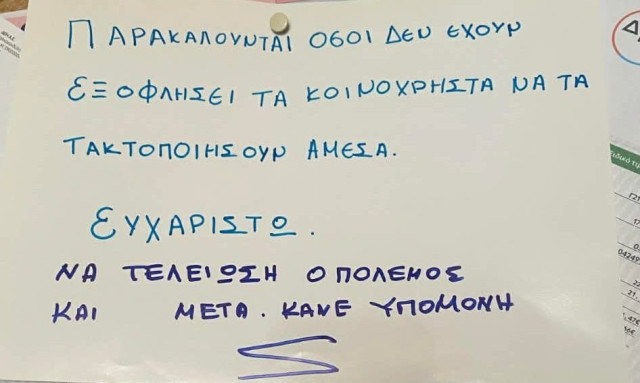 ΠΑΡΑΚΑΛΟΥΝΤΑΙ ΟΣΟΙ ΔΕΝ ΕΧΟΥΝ
ΕΞΟΦΛΗΣΕΙ ΤΑ ΚΟΙΝΟΧΡΗΣΤΑ ΝΑ ΤΑ
ΤΑΚΤΟΠΟΙΗΣΟΥΝ ΑΜΕΣΑ.
ΕΥΧΑΡΙΣΤΩ.
ΝΑ ΤΕΛΕΙΩΣΗ Ο ΠΟΛΕΜΟΣ
ΚΑΙ ΜΕΤΑ. ΚΑΝΕ ΥΠΟΜΟΝΗ